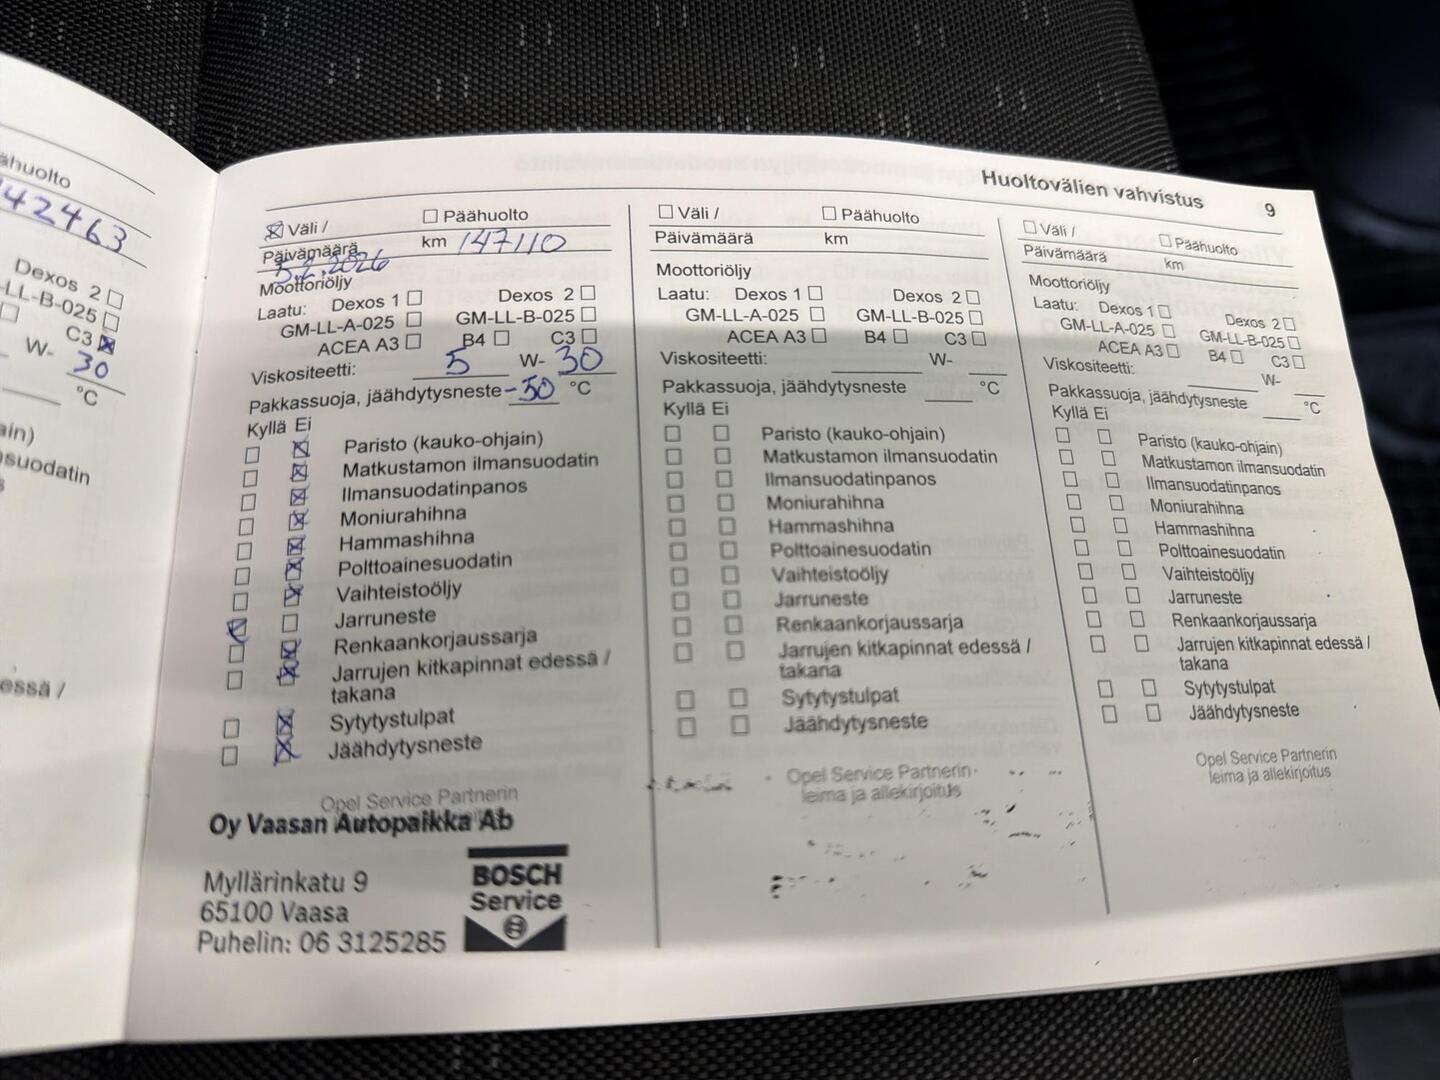 ähuolto
42463
Dexos 2
-LL-B-025
C3
W- 30
°C
ain)
suodatin
s
essä /
Huoltovälien vahvistus 9
Väli / Päähuolto
Päivämäärä km 147110
5.2.2026
Moottoriöljy
Laatu: Dexos 1 Dexos 2
GM-LL-A-025 GM-LL-B-025
ACEA A3 B4 C3
Viskositeetti: 5 W- 30
Pakkassuoja, jäähdytysneste -50 °C
Kyllä Ei
Paristo (kauko-ohjain)
Matkustamon ilmansuodatin
Ilmansuodatinpanos
Moniurahihna
Hammashihna
Polttoainesuodatin
Vaihteistoöljy
Jarruneste
Renkaankorjaussarja
Jarrujen kitkapinnat edessä /
takana
Sytytystulpat
Jäähdytysneste
Opel Service Partnerin
Oy Vaasan Autopaikka Ab
Myllärinkatu 9
65100 Vaasa
Puhelin: 06 3125285
BOSCH
Service
Väli / Päähuolto
Päivämäärä km
Moottoriöljy
Laatu: Dexos 1 Dexos 2
GM-LL-A-025 GM-LL-B-025
ACEA A3 B4 C3
Viskositeetti: W-
Pakkassuoja, jäähdytysneste °C
Kyllä Ei
Paristo (kauko-ohjain)
Matkustamon ilmansuodatin
Ilmansuodatinpanos
Moniurahihna
Hammashihna
Polttoainesuodatin
Vaihteistoöljy
Jarruneste
Renkaankorjaussarja
Jarrujen kitkapinnat edessä /
takana
Sytytystulpat
Jäähdytysneste
Opel Service Partnerin
leima ja allekirjoitus
Väli / Päähuolto
Päivämäärä km
Moottoriöljy
Laatu: Dexos 1 Dexos 2
GM-LL-A-025 GM-LL-B-025
ACEA A3 B4 C3
Viskositeetti: W-
Pakkassuoja, jäähdytysneste °C
Kyllä Ei
Paristo (kauko-ohjain)
Matkustamon ilmansuodatin
Ilmansuodatinpanos
Moniurahihna
Hammashihna
Polttoainesuodatin
Vaihteistoöljy
Jarruneste
Renkaankorjaussarja
Jarrujen kitkapinnat edessä /
takana
Sytytystulpat
Jäähdytysneste
Opel Service Partnerin
leima ja allekirjoitus